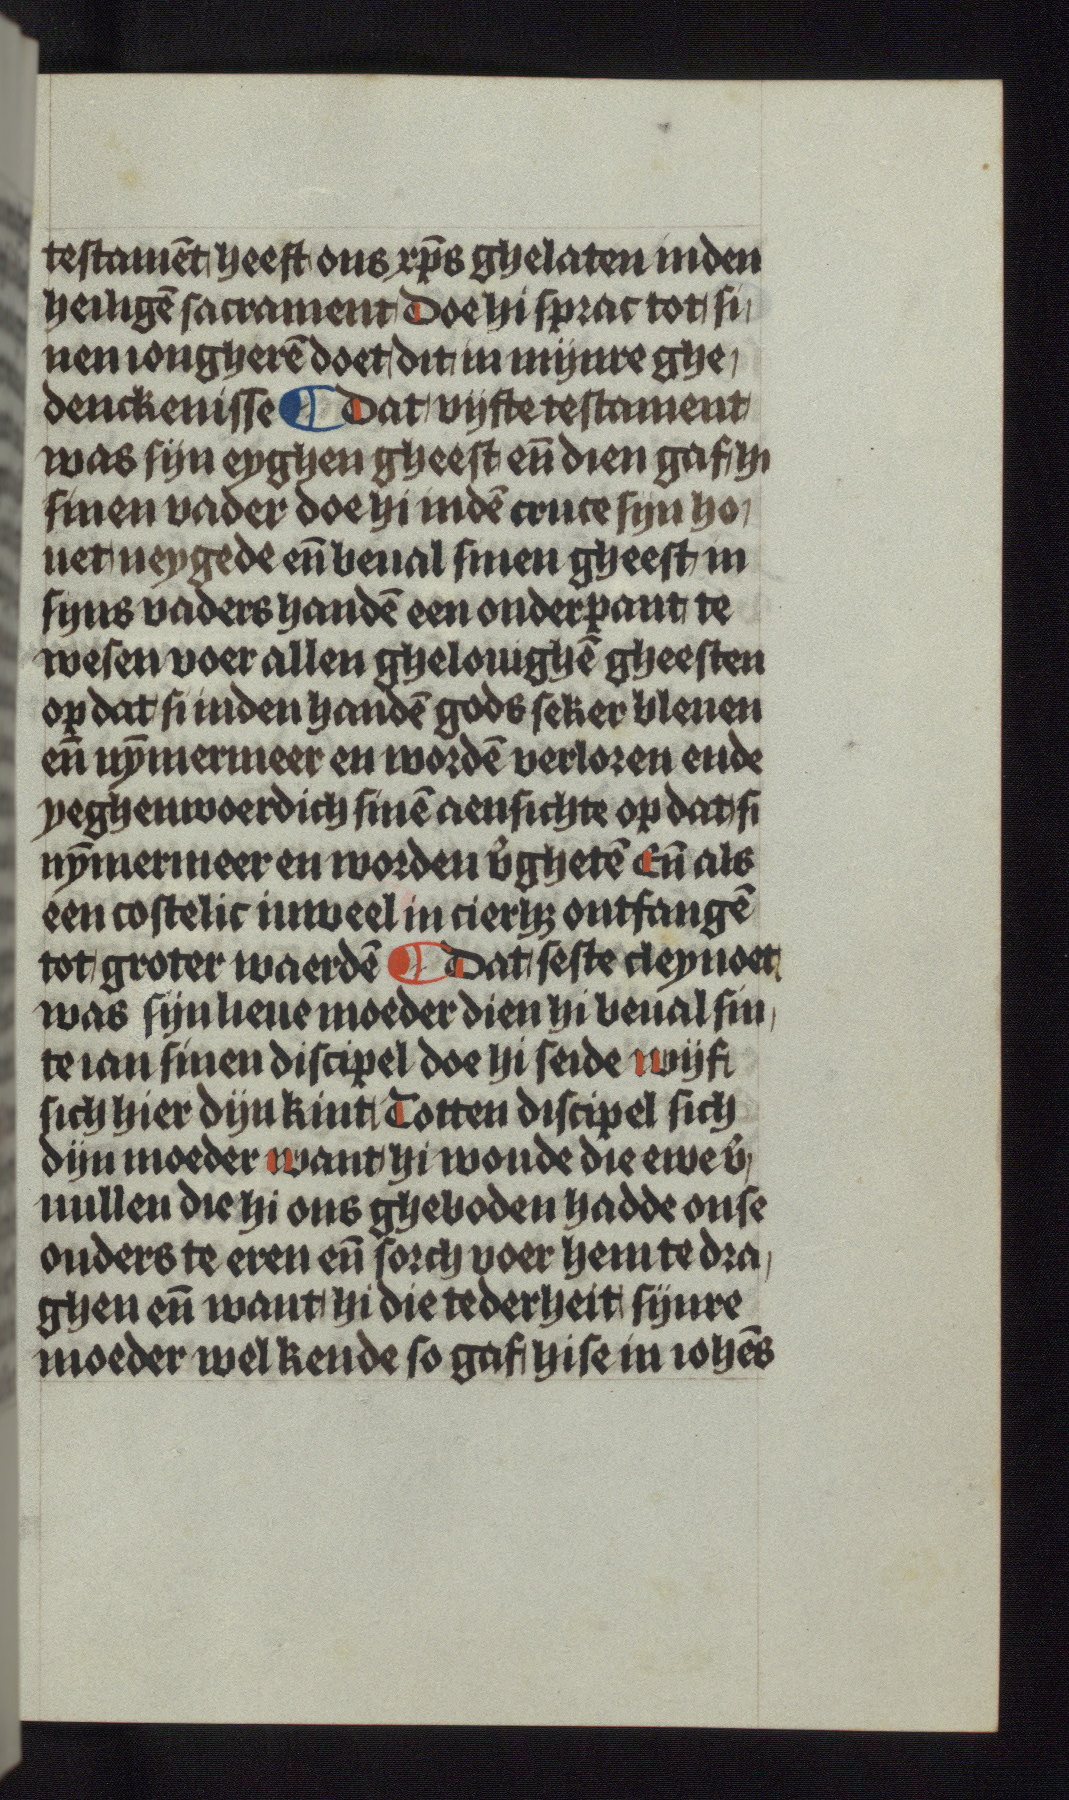 testamēt heeft ons xp̄s ghelaten inden
heiligē sacrament Doe hi sprac tot si,
nen iongherē doet dit in mijnre ghe,
denckenisse ¶ Dat vijfte testament
was sijn eyghen gheest eñ dien gaf hi
sinen vader doe hi indē cruce sijn ho,
uet neygede eñ beual sinen gheest in
sijns vaders handē een onderpant te
wesen voer allen ghelouighē gheesten
op dat si inden handē gods seker bleuen
eñ nȳmermeer en wordē verloren ende
yeghenwoerdich sinē aensichte op dat si
nȳmermeer en worden v̾ghetē Eñ als
een costelic iuweel in cierhz ontfangē
tot groter waerdē ¶ Dat seste cleynoet
was sijn lieue moeder dien hi beual sin,
te ian sinen discipel doe hi seide wijf
sich hier dijn kint Totten discipel sich
dijn moeder want hi woude die ewe v̾,
uullen die hi ons gheboden hadde onse
ouders te eren eñ sorch voer hem te dra,
ghen eñ want hi die tederheit sijnre
moeder wel kende so gaf hise in iohēs